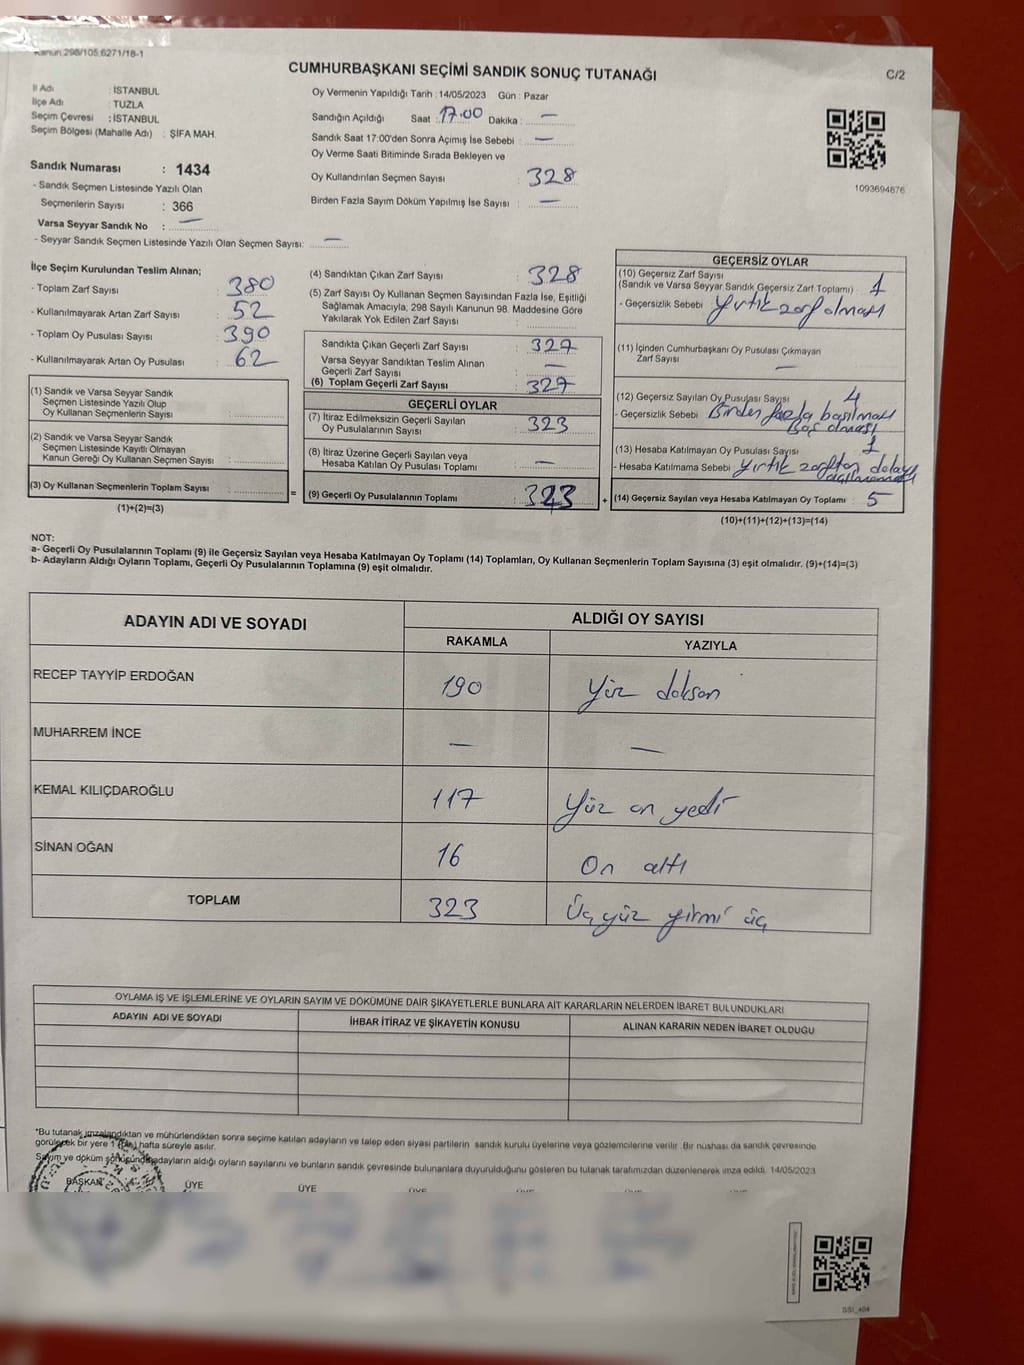 Kanun 298/105.6271/18-1
CUMHURBAŞKANI SEÇİMİ SANDIK SONUÇ TUTANAĞI
C/2
İl Adı : İSTANBUL
İlçe Adı : TUZLA
Seçim Çevresi : İSTANBUL
Seçim Bölgesi (Mahalle Adı) : ŞİFA MAH.
Sandık Numarası : 1434
- Sandık Seçmen Listesinde Yazılı Olan
Seçmenlerin Sayısı : 366
Varsa Seyyar Sandık No : —
- Seyyar Sandık Seçmen Listesinde Yazılı Olan Seçmen Sayısı: —
Oy Vermenin Yapıldığı Tarih : 14/05/2023 Gün : Pazar
Sandığın Açıldığı Saat : 17.00 Dakika : —
Sandık Saat 17:00'den Sonra Açımış İse Sebebi : —
Oy Verme Saati Bitiminde Sırada Bekleyen ve
Oy Kullandırılan Seçmen Sayısı : 328
Birden Fazla Sayım Döküm Yapılmış İse Sayısı : —
1093694876
İlçe Seçim Kurulundan Teslim Alınan;
- Toplam Zarf Sayısı : 380
- Kullanılmayarak Artan Zarf Sayısı : 52
- Toplam Oy Pusulası Sayısı : 390
- Kullanılmayarak Artan Oy Pusulası : 62
(1) Sandık ve Varsa Seyyar Sandık
Seçmen Listesinde Yazılı Olup
Oy Kullanan Seçmenlerin Sayısı :
(2) Sandık ve Varsa Seyyar Sandık
Seçmen Listesinde Kayıtlı Olmayan
Kanun Gereği Oy Kullanan Seçmen Sayısı :
(3) Oy Kullanan Seçmenlerin Toplam Sayısı :
(1)+(2)=(3)
=
(4) Sandıktan Çıkan Zarf Sayısı : 328
(5) Zarf Sayısı Oy Kullanan Seçmen Sayısından Fazla İse, Eşitliği
Sağlamak Amacıyla, 298 Sayılı Kanunun 98. Maddesine Göre
Yakılarak Yok Edilen Zarf Sayısı :
Sandıkta Çıkan Geçerli Zarf Sayısı : 327
Varsa Seyyar Sandıktan Teslim Alınan
Geçerli Zarf Sayısı : —
(6) Toplam Geçerli Zarf Sayısı : 327
GEÇERLİ OYLAR
(7) İtiraz Edilmeksizin Geçerli Sayılan
Oy Pusulalarının Sayısı : 323
(8) İtiraz Üzerine Geçerli Sayılan veya
Hesaba Katılan Oy Pusulası Toplamı : —
(9) Geçerli Oy Pusulalarının Toplamı : 323
+
GEÇERSİZ OYLAR
(10) Geçersiz Zarf Sayısı
(Sandık ve Varsa Seyyar Sandık Geçersiz Zarf Toplamı) : 1
- Geçersizlik Sebebi : Yırtık zarf olması
(11) İçinden Cumhurbaşkanı Oy Pusulası Çıkmayan
Zarf Sayısı : —
(12) Geçersiz Sayılan Oy Pusulası Sayısı : 4
- Geçersizlik Sebebi : Birden fazla basılması
Boş olması
(13) Hesaba Katılmayan Oy Pusulası Sayısı : 1
- Hesaba Katılmama Sebebi : Yırtık zarftan dolayı
açılmaması
(14) Geçersiz Sayılan veya Hesaba Katılmayan Oy Toplamı : 5
(10)+(11)+(12)+(13)=(14)
NOT:
a- Geçerli Oy Pusulalarının Toplamı (9) ile Geçersiz Sayılan veya Hesaba Katılmayan Oy Toplamı (14) Toplamları, Oy Kullanan Seçmenlerin Toplam Sayısına (3) eşit olmalıdır. (9)+(14)=(3)
b- Adayların Aldığı Oyların Toplamı, Geçerli Oy Pusulalarının Toplamına (9) eşit olmalıdır.
ADAYIN ADI VE SOYADI
ALDIĞI OY SAYISI
RAKAMLA YAZIYLA
RECEP TAYYİP ERDOĞAN 190 Yüz doksan
MUHARREM İNCE — —
KEMAL KILIÇDAROĞLU 117 Yüz on yedi
SİNAN OĞAN 16 On altı
TOPLAM 323 Üç yüz yirmi üç
OYLAMA İŞ VE İŞLEMLERİNE VE OYLARIN SAYIM VE DÖKÜMÜNE DAİR ŞİKAYETLERLE BUNLARA AİT KARARLARIN NELERDEN İBARET BULUNDUKLARI
ADAYIN ADI VE SOYADI İHBAR İTİRAZ VE ŞİKAYETİN KONUSU ALINAN KARARIN NEDEN İBARET OLDUĞU
*Bu tutanak imzalandıktan ve mühürlendikten sonra seçime katılan adayların ve talep eden siyasi partilerin sandık kurulu üyelerine veya gözlemcilerine verilir. Bir nüshası da sandık çevresinde
görülecek bir yere 1 (bir) hafta süreyle asılır.
Sayım ve döküm sonucunda adayların aldığı oyların sayılarını ve bunların sandık çevresinde bulunanlara duyurulduğunu gösteren bu tutanak tarafımızdan düzenlenerek imza edildi. 14/05/2023
BAŞKAN ÜYE ÜYE ÜYE ÜYE ÜYE ÜYE
SSI_404